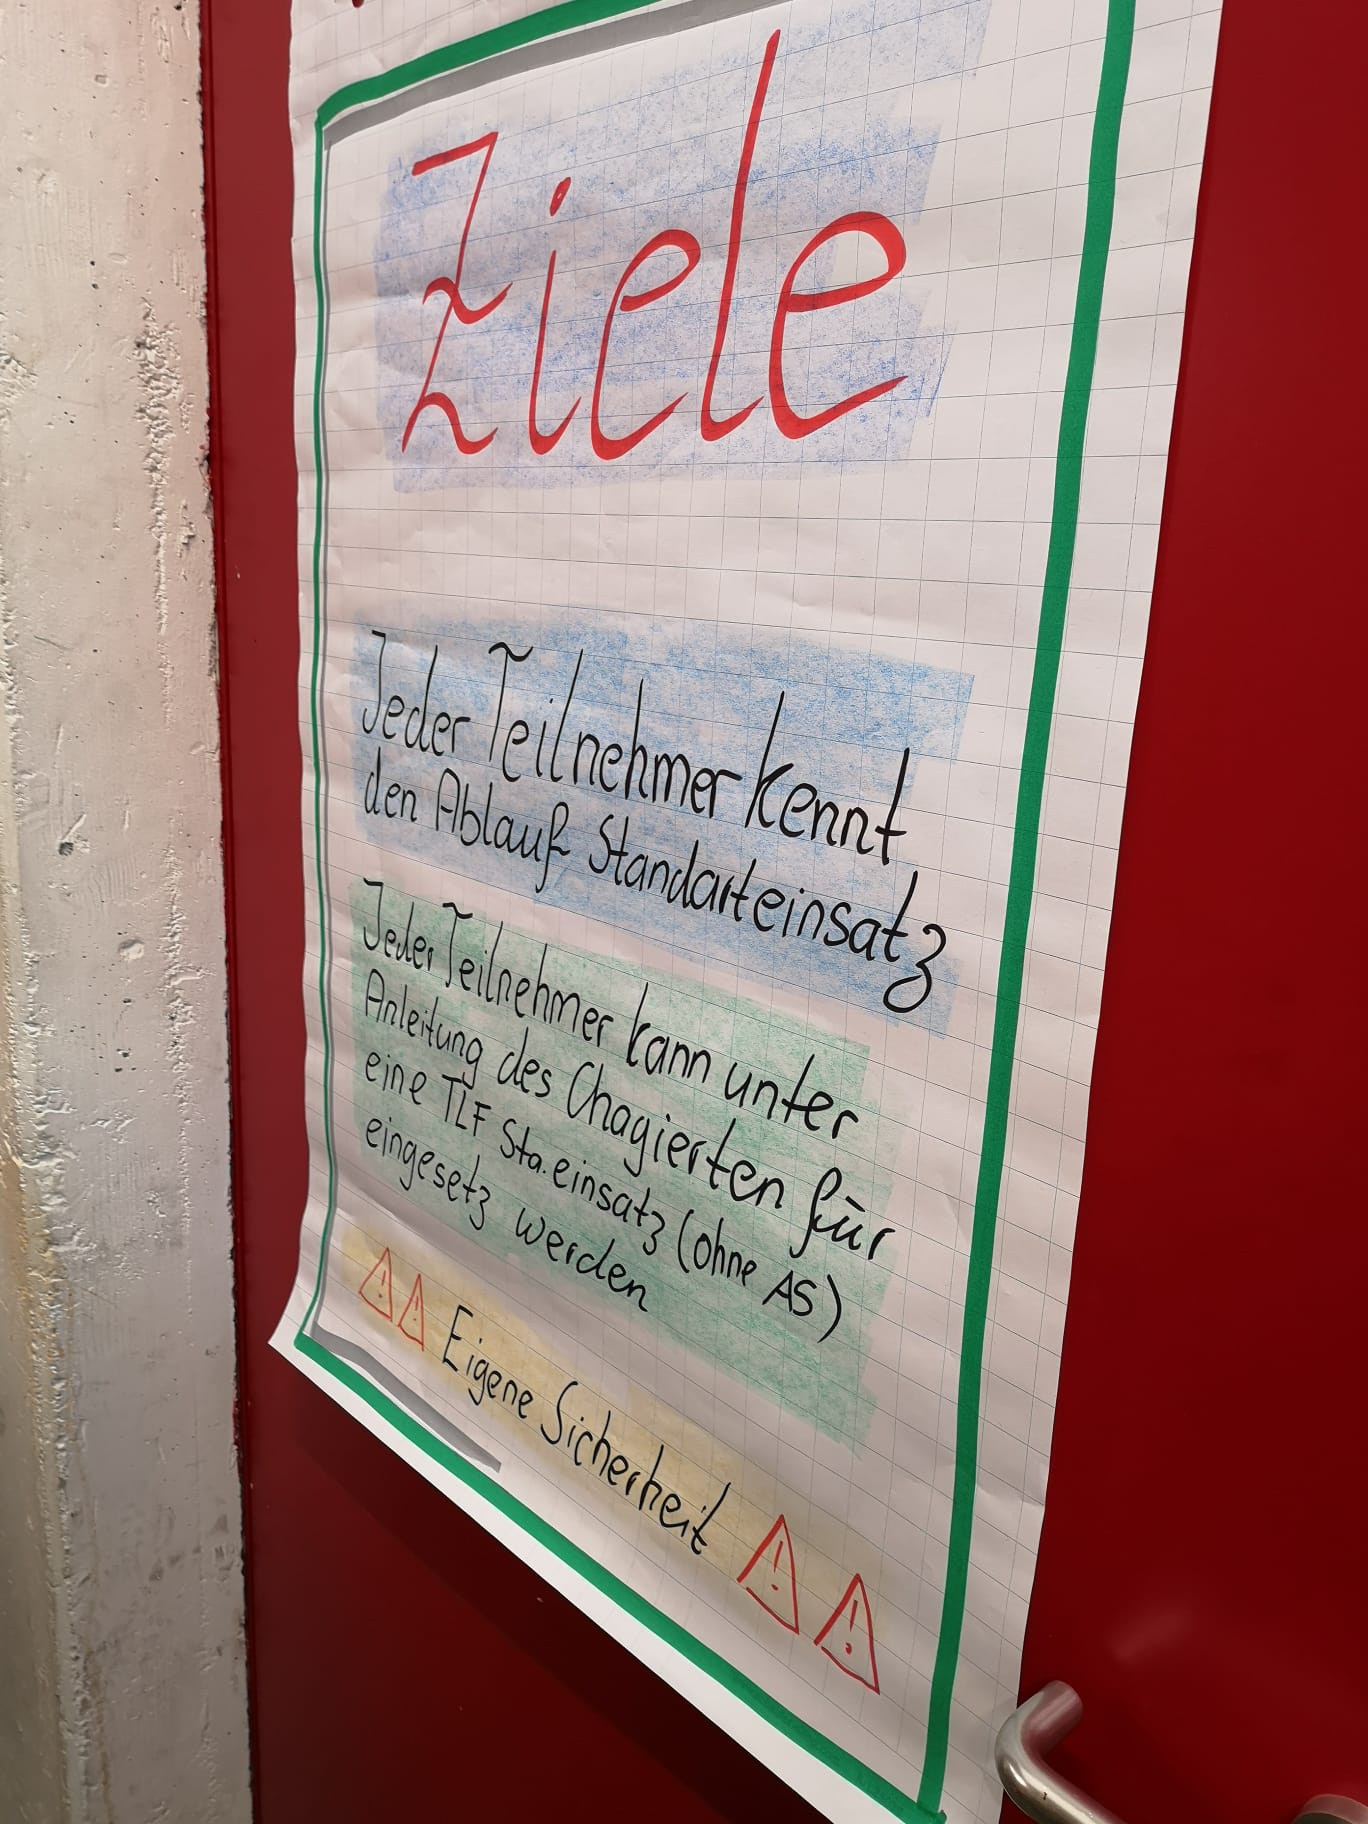 Ziele
Jeder Teilnehmer kennt
den Ablauf Standarteinsatz
Jeder Teilnehmer kann unter
Anleitung des Chagierten für
eine TLF Sta.einsatz (ohne AS)
eingesetz werden
Eigene Sicherheit